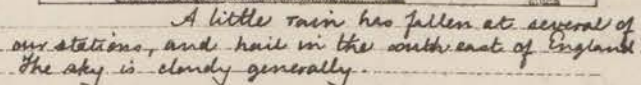 A little rain has fallen at several of
our stations, and hail in the south east of England
The sky is cloudy generally.